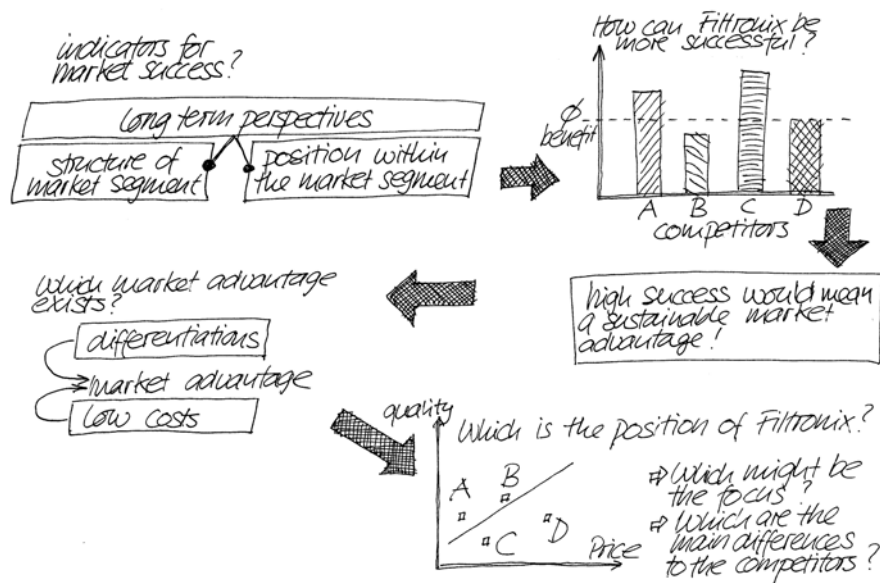 indicators for
market success?
long term perspectives
structure of
market segment
position within
the market segment
How can Filtronix be
more successful?
ϕ
benefit
A B C D
competitors
high success would mean
a sustainable market
advantage!
Which market advantage
exists?
differentiations
market advantage
low costs
quality
Which is the position of Filtronix?
A B
C D
Price
⇨ Which might be
the focus?
⇨ Which are the
main differences
to the competitors?